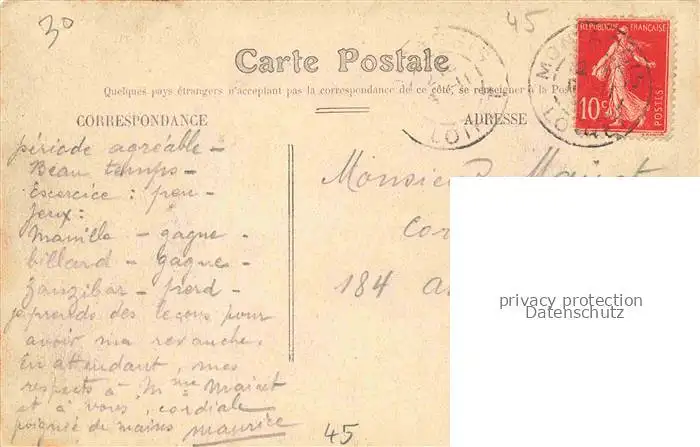 30
45
RÉPUBLIQUE FRANÇAISE
10c
POSTES
MONTARGIS
LOIRET
Carte Postale
Quelques pays étrangers n'acceptant pas la correspondance de ce côté, se renseigner à la Poste
CORRESPONDANCE
ADRESSE
période agréable -
Beau temps -
Exercice : peu -
Jeux :
Manille - gagne -
billard - gagne -
Zanzibar - perd -
je prends des leçons pour
avoir ma revanche.
En attendant, mes
respects à Mme Mairet
et à vous, cordiale
poignée de mains Maurice
Monsieur Mairet
184
privacy protection
Datenschutz
45